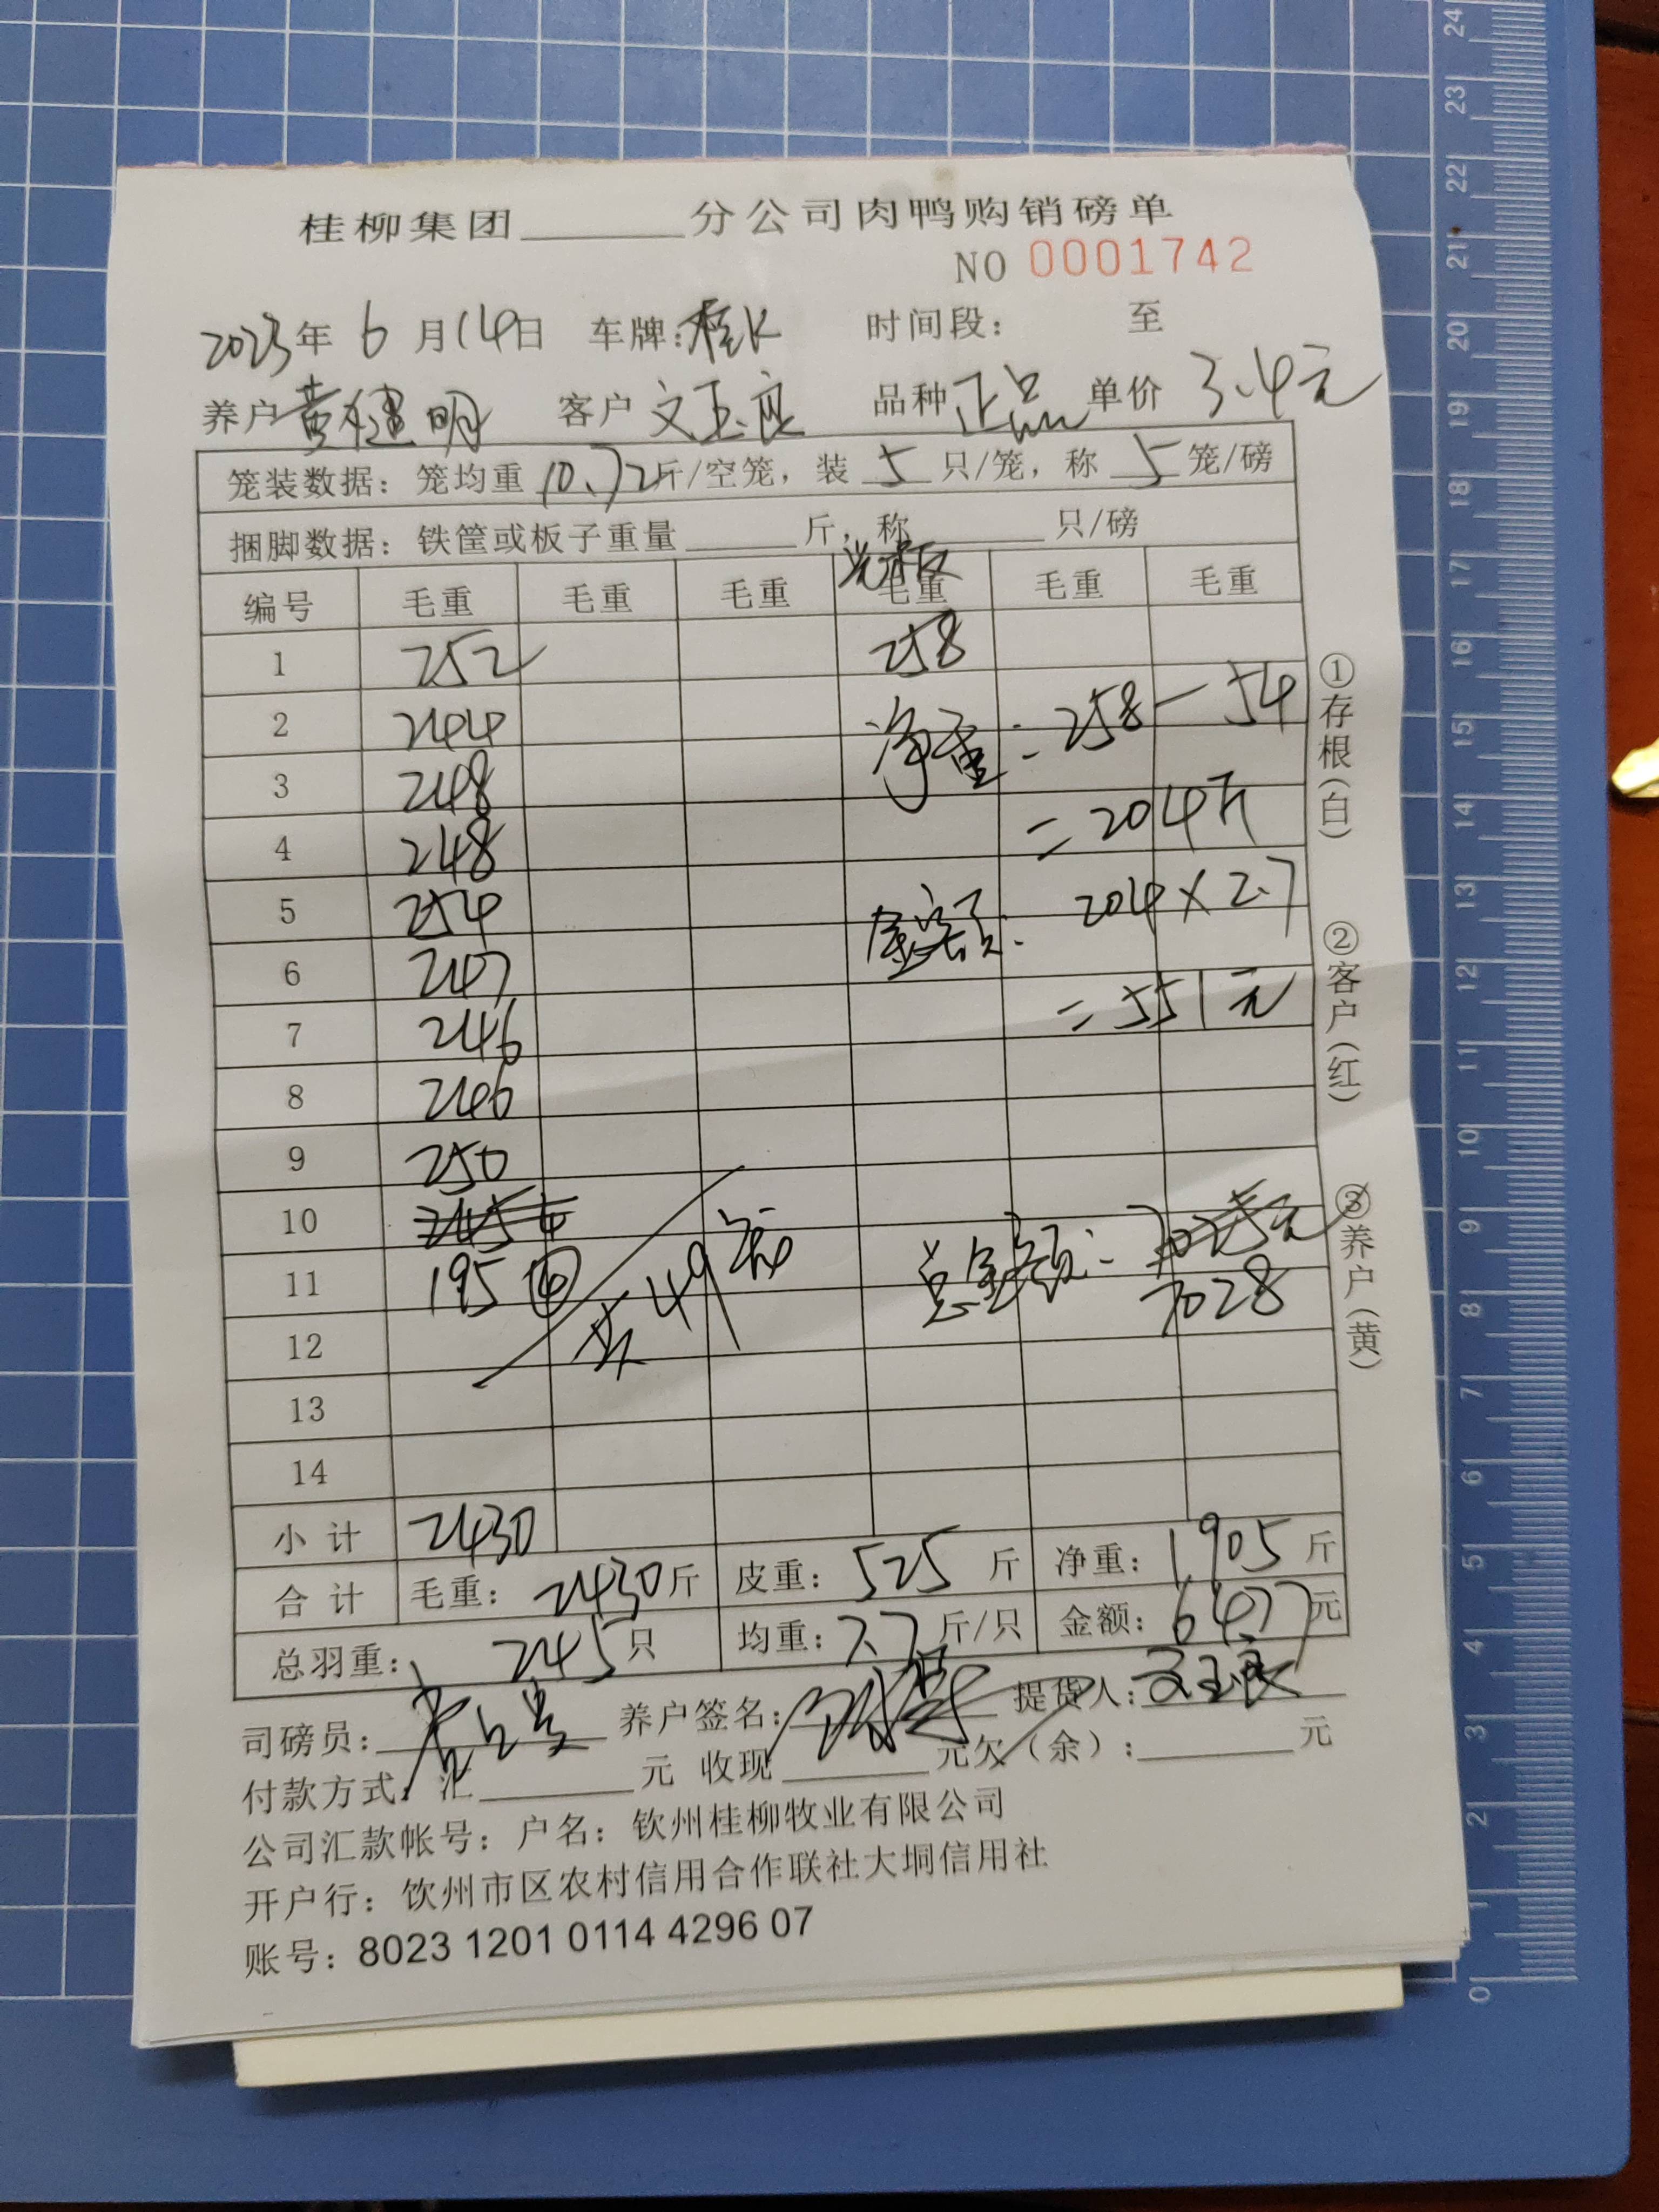 桂柳集团______分公司肉鸭购销磅单
NO 0001742
2023年 6 月14日 车牌:桂K 时间段: 至
养户 黄健明 客户 文玉良 品种 正品 单价 3.4元
笼装数据: 笼均重 10.72斤/空笼, 装 5 只/笼, 称 5 笼/磅
捆脚数据: 铁筐或板子重量______斤, 称______只/磅
光板
编号 毛重 毛重 毛重 毛重 毛重 毛重
1 252 258
2 244 净重:258-54
3 248
4 248 =204斤
5 254 金额:204×2.7
6 247
7 246 =551元
8 246
9 250
10 245 总金额:7025元
11 195 ④ 共49笼 7028
12
13
14
小计 2430
合计 毛重: 2430斤 皮重: 525 斤 净重: 1905 斤
总羽重: 245只 均重: 7.7斤/只 金额: 6477元
司磅员: 养户签名: 提货人: 文玉良
付款方式: 汇______元 收现______元欠(余):______元
公司汇款帐号: 户名: 钦州桂柳牧业有限公司
开户行: 钦州市区农村信用合作联社大垌信用社
账号: 8023 1201 0114 4296 07
①存根(白)
②客户(红)
③养户(黄)
24
23
22
21
20
19
18
17
16
15
14
13
12
11
10
9
8
7
6
5
4
3
2
1
0